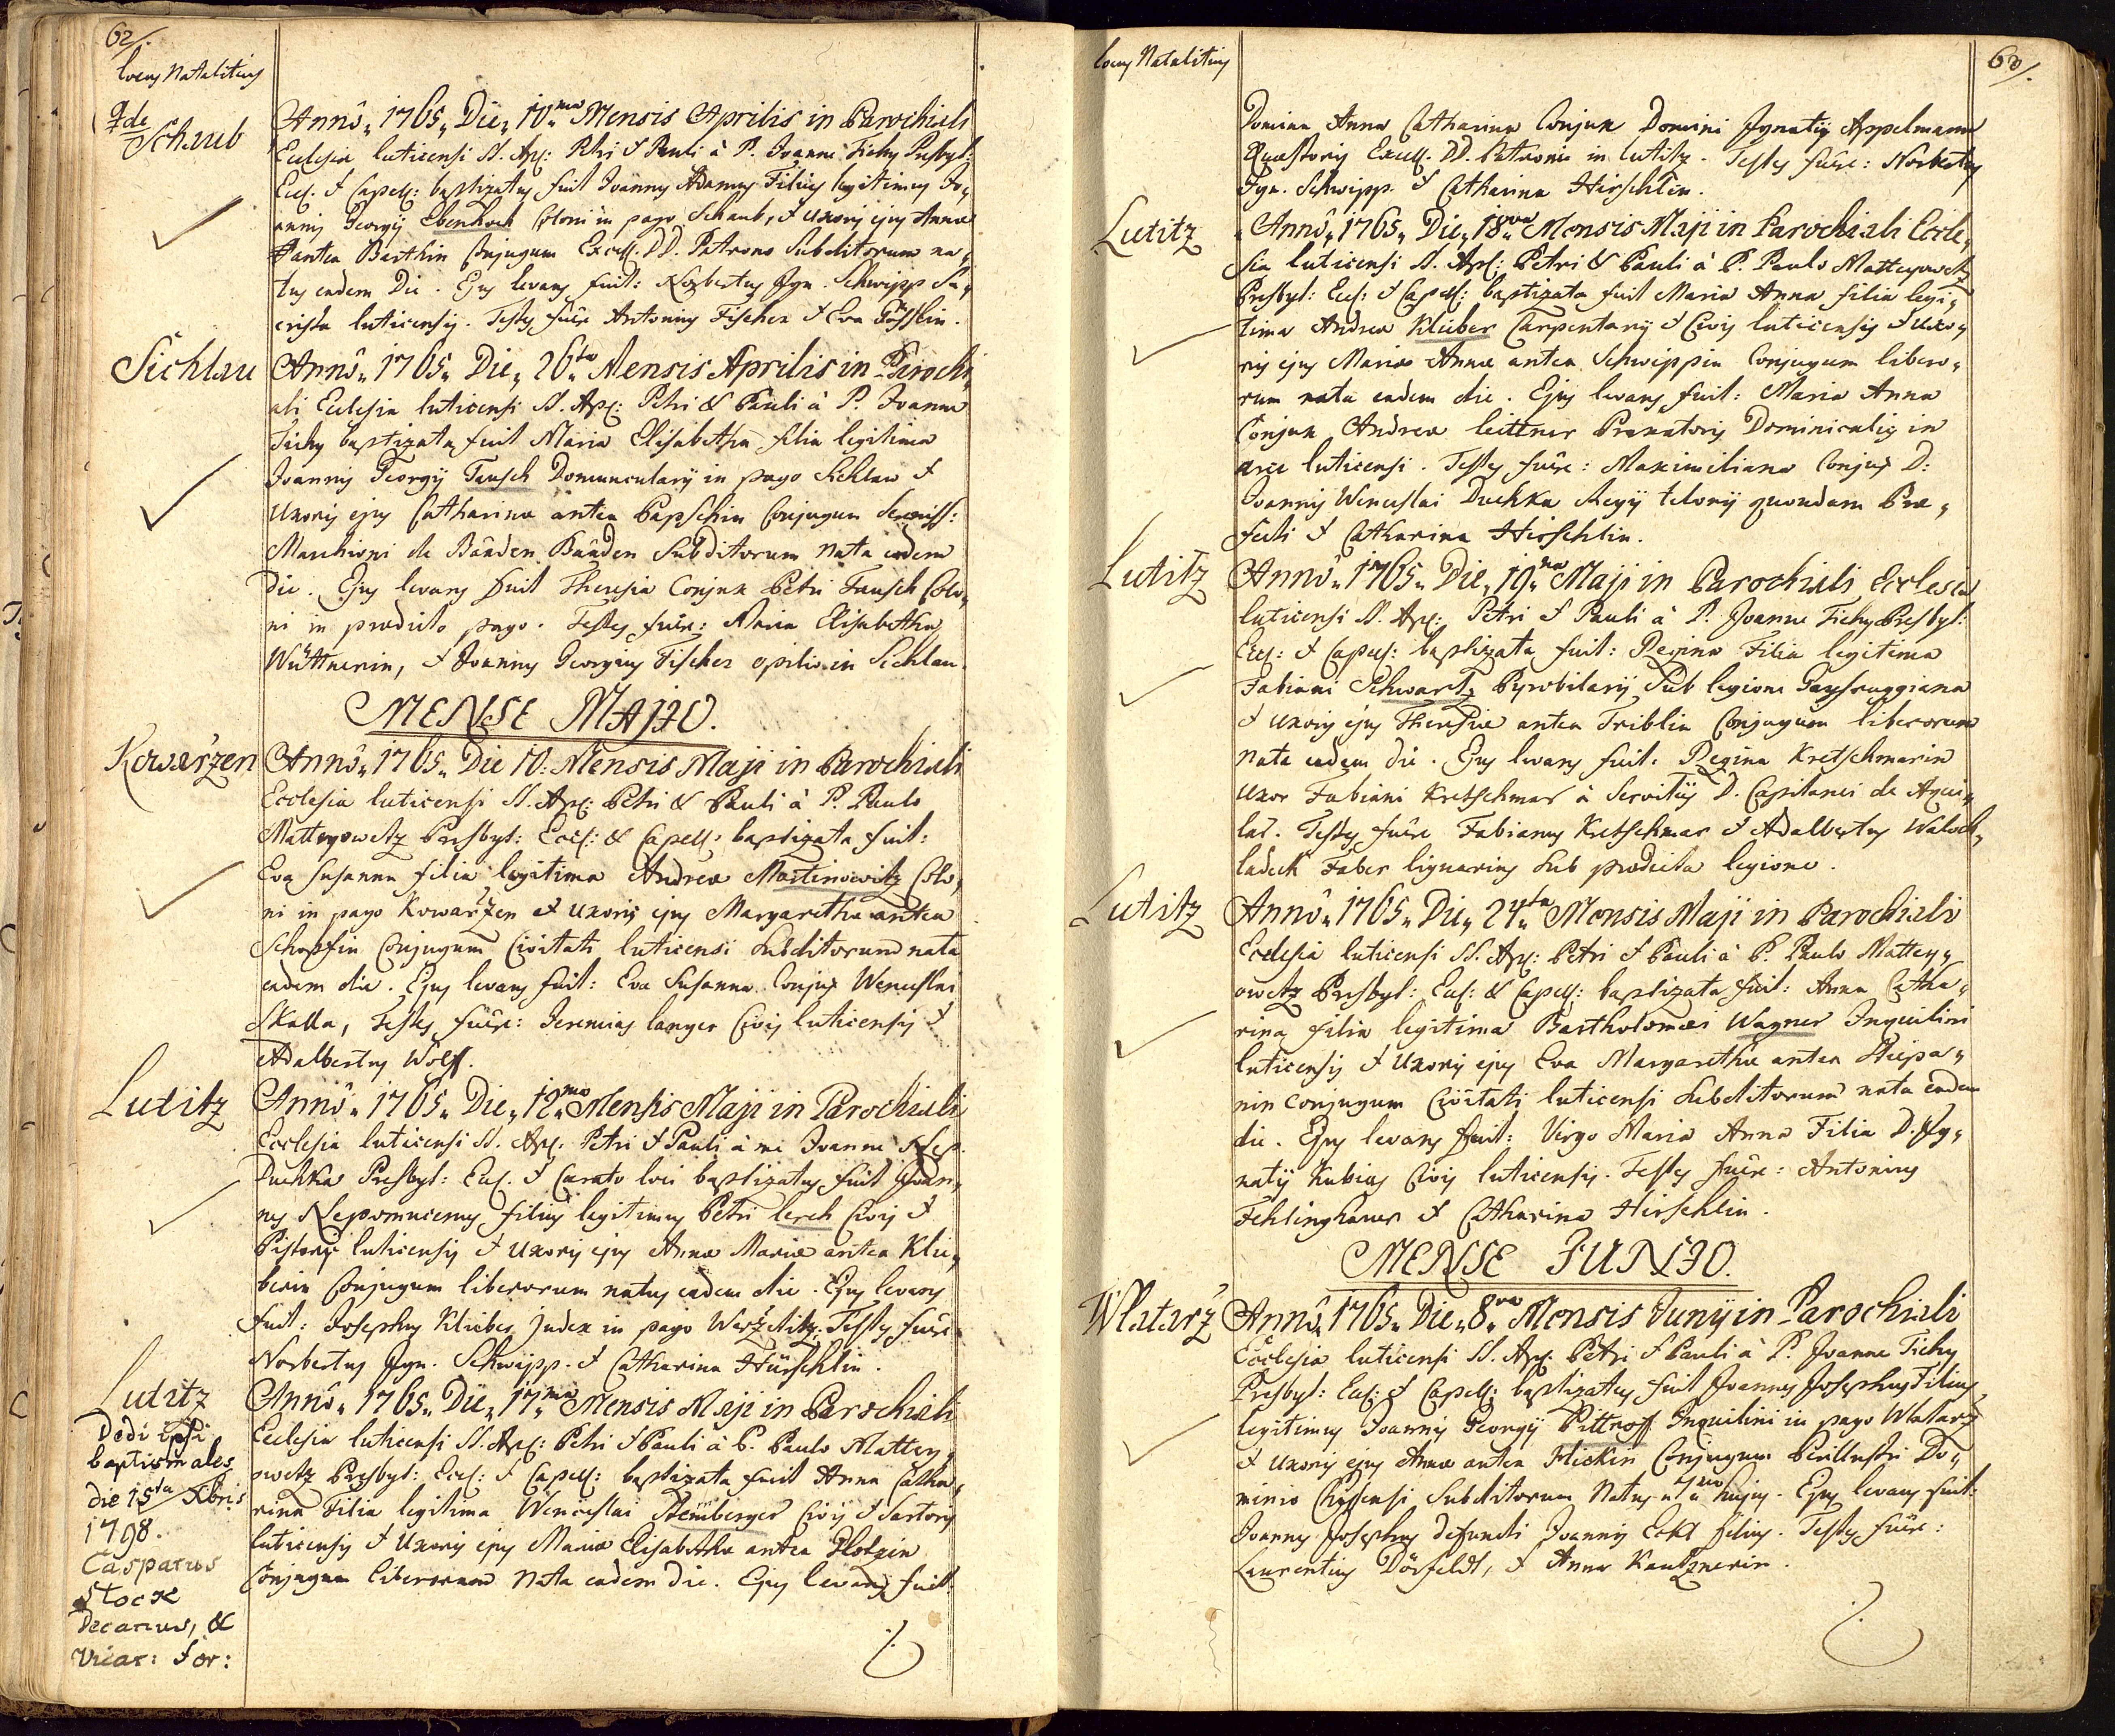 62/.
Locus Natalitius
Schaub
Anno 1765 Die 10ma Mensis Aprilis in Parochiali
Ecclesia luticensi SS. Apl: Petri & Pauli à P. Joanne Tichy Presbyt:
Eccl. & Capell: baptizatus fuit Joannes Adamus Filius legitimus Jo„
annis Georgij Ebenhoch Coloni in pago Schaub, & Uxoris ejus Annæ
antea Barthin Conjugum Excell. DD. Patrono Subditorum na„
tus eadem Die. Ejus levans fuit: Norbertus Ign. Schwipp Sa„
crista luticensis. Testes fuêre Antonius Fischer & Eva
Sichlau
Anno 1765 Die 26ta Mensis Aprilis in Parochi
ali Ecclesia luticensi SS. Apl: Petri & Pauli à P. Joanne
Tichy baptizata fuit Maria Elisabetha filia legitima
Joannis Georgij Tausch Domuncularij in pago Sichlau &
Uxoris ejus Catharinæ antea Papschin Conjugum Sereniss:
Marchioni de Baaden Baaden Subditorum nata eadem
Die. Ejus levans fuit Theresia Conjux Petri Tausch Colo„
ni in prædicto pago. Testes fuêre: Maria Elisabetha
Wüttnerin, & Joannes Georgius Fischer opilio in Sichlau.
MENSE MAJO.
Kowaržen
Anno 1765 Die 10: Mensis Maji in Parochiali
Ecclesia luticensi SS. Apl: Petri & Pauli à P. Paulo
Matteyowetz Presbyt: Eccl: & Capell: baptizata fuit:
Eva Susanna filia legitima Andreæ Martinowitz Colo„
ni in pago Kowaržen et Uxoris ejus Margarethæ antea
Schopfin Conjugum Civitati luticensi Subditorum nata
eadem die. Ejus levans fuit: Eva Susanna Conjux Wenceslai
Skalla, Testes fuêre: Jeremias Langer Civis luticensis &
Adalbertus Wolff.
Lutitz
Anno 1765 Die 12ma Mensis Maji in Parochiali
Ecclesia luticensi SS. Apl: Petri & Pauli à me Joanne Nep.
Duchka Presbyt: Eccl. & Curato loci baptizatus fuit Joan„
nes Nepomucenus filius legitimus Petri Lerch Civis &
Pistoris luticensis & Uxoris ejus Annæ Mariæ antea Klie„
berin Conjugum liberorum natus eadem die. Ejus levans
fuit: Josephus Klieber Judex in pago Weržeditz, Testes fuêre
Norbertus Ign. Schwipp. & Catharina Hirschlin.
Lutitz
Anno 1765 Die 17ma Mensis Maji in Parochiali
Ecclesia luticensi SS. Apl: Petri & Pauli à P. Paulo Mattey„
owetz Presbyt: Eccl: & Capell: baptizata fuit Anna Catha„
rina Filia legitima Wenceslai Stemberger Civis & Sartoris
luticensis & Uxoris ejus Mariæ Elisabethæ antea
Conjugum liberorum nata eadem die. Ejus levans fuit:
Dedi ipsi
baptismales
die 15ta Xbris
1798.
Casparus
Stock
Decanus, &
Vicar: For:
Locus Natalitius
63/.
Domina Anna Catharina Conjux Domini Ignatij Appelmann
Quæstoris Excell. DD. Patroni in Lutitz. Testes fuêre: Norbertus
Ign. Schwipp. & Catharina Hirschlin.
Lutitz
Anno 1765 Die 18va Mensis Maji in Parochiali Eccle„
sia luticensi SS. Apl: Petri & Pauli à P. Paulo Matteyowetz
Presbyt: Eccl: & Capell: baptizata fuit Maria Anna filia legi„
tima Andreæ Klieber Carpentarij & Civis luticensis & Uxo„
ris ejus Mariæ Annæ antea Schwippin Conjugum libero„
rum nata eadem die. Ejus levans fuit: Maria Anna
Conjux Andreæ Leittner Braxatoris Dominicalis in
arce luticensi. Testes fuêre: Maximiliana Conjux D:
Joannis Wenceslai Duchka Regij telonij quondam Præ„
fecti & Catharina Hirschlin.
Lutitz
Anno 1765 Die 19na Maji in Parochiali Ecclesia
luticensi SS. Apl: Petri & Pauli à P. Joanne Tichy Presbyt:
Eccl: & Capell: baptizata fuit: Regina Filia legitima
Fabiani Schwartz Pyrobilarij Sub legione
& Uxoris ejus Theresiæ antea Triblin Conjugum liberorum
nata eadem die. Ejus levans fuit: Regina Kretschmarin
Uxor Fabiani Kretschmar à Servitijs D. Capitanei de Aqui„
lar. Testes fuêre Fabianus Kretschmar & Adalbertus Waloch„
ladeck Faber lignarius Sub prædicta legione.
Lutitz
Anno 1765 Die 24ta Mensis Maji in Parochiali
Ecclesia luticensi SS. Apl: Petri & Pauli à P. Paulo Mattey„
owetz Presbyt: Eccl: & Capell: baptizata fuit: Anna Catha„
rina filia legitima Bartholomæi Wagner Inquilini
luticensis & Uxoris ejus Eva Margaretha antea Stiepa„
nin Conjugum Civitati luticensi Subditorum nata eadem
die. Ejus levans fuit: Virgo Maria Anna Filia D. Ig„
natij Kubias Civis luticensis. Testes fuêre: Antonius
Fehlinghauer & Catharina Hirschlin.
MENSE JUNIO.
Wlatarž
Anno 1765 Die 8va Mensis Junij in Parochiali
Ecclesia luticensi SS. Apl: Petri & Pauli à P. Joanne Tichy
Presbyt: Eccl: & Capell: baptizatus fuit Joannes Josephus Filius
legitimus Joannis Georgij Pittroff Inquilini in pago Wlatarž
& Uxoris ejus Annæ antea Flickin Conjugum Perillustri Do„
minio Chyssensi Subditorum Natus 7ma hujus. Ejus levans fuit:
Joannes Josephus defuncti Joannis Eckl filius. Testes fuêre:
Laurentius Dörfeldt, & Anna Kautznerin.